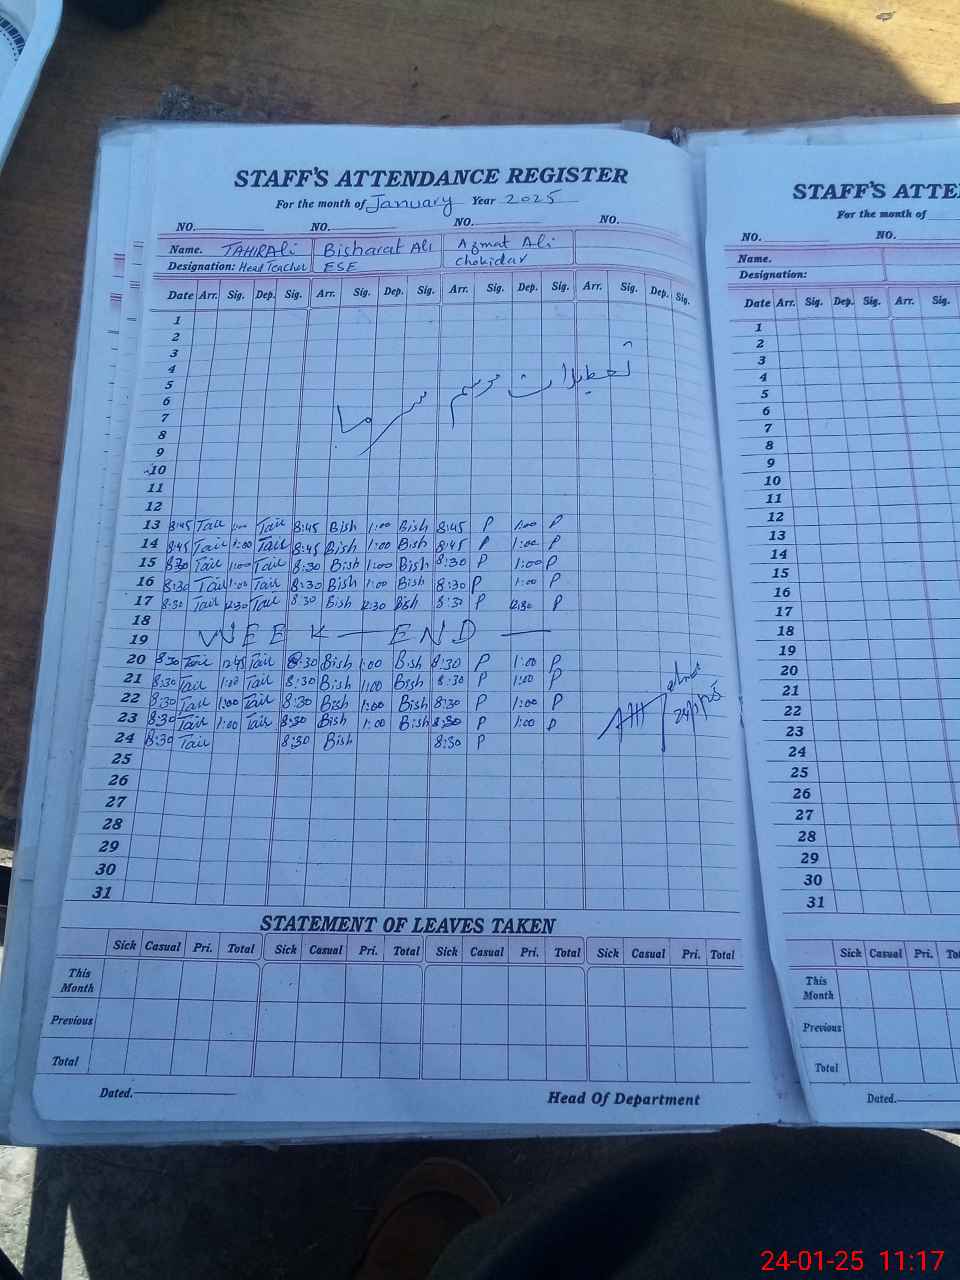 STAFF'S ATTENDANCE REGISTER
For the month of January Year 2025
NO. NO. NO. NO.
Name. TAHIR Ali Bisharat Ali Azmat Ali
Designation: Head Teacher ESE Chokidar
Date Arr. Sig. Dep. Sig. Arr. Sig. Dep. Sig. Arr. Sig. Dep. Sig. Arr. Sig. Dep. Sig.
1
2
3
4
تعطیلات موسم سرما
5
6
7
8
9
10
11
12
13 8:45 Tair 1:00 Tair 8:45 Bish 1:00 Bish 8:45 P 1:00 P
14 8:45 Tair 1:00 Tair 8:45 Bish 1:00 Bish 8:45 P 1:00 P
15 8:30 Tair 1:00 Tair 8:30 Bish 1:00 Bish 8:30 P 1:00 P
16 8:30 Tair 1:00 Tair 8:30 Bish 1:00 Bish 8:30 P 1:00 P
17 8:30 Tair 12:30 Tair 8:30 Bish 12:30 Bish 8:30 P 12:30 P
18
19 WEEK — END —
20 8:30 Tair 12:45 Tair 8:30 Bish 1:00 Bish 8:30 P 1:00 P
21 8:30 Tair 1:00 Tair 8:30 Bish 1:00 Bish 8:30 P 1:00 P
22 8:30 Tair 1:00 Tair 8:30 Bish 1:00 Bish 8:30 P 1:00 P
23 8:30 Tair 1:00 Tair 8:30 Bish 1:00 Bish 8:30 P 1:00 P
24 8:30 Tair 8:30 Bish 8:30 P
25
26
27
28
29
30
31
STATEMENT OF LEAVES TAKEN
Sick Casual Pri. Total Sick Casual Pri. Total Sick Casual Pri. Total Sick Casual Pri. Total
This Month
Previous
Total
Dated. Head Of Department
STAFF'S ATTE
For the month of
NO. NO.
Name.
Designation:
Date Arr. Sig. Dep. Sig. Arr. Sig.
1
2
3
4
5
6
7
8
9
10
11
12
13
14
15
16
17
18
19
20
21
22
23
24
25
26
27
28
29
30
31
Sick Casual Pri.
This Month
Previous
Total
Dated.
24-01-25 11:17